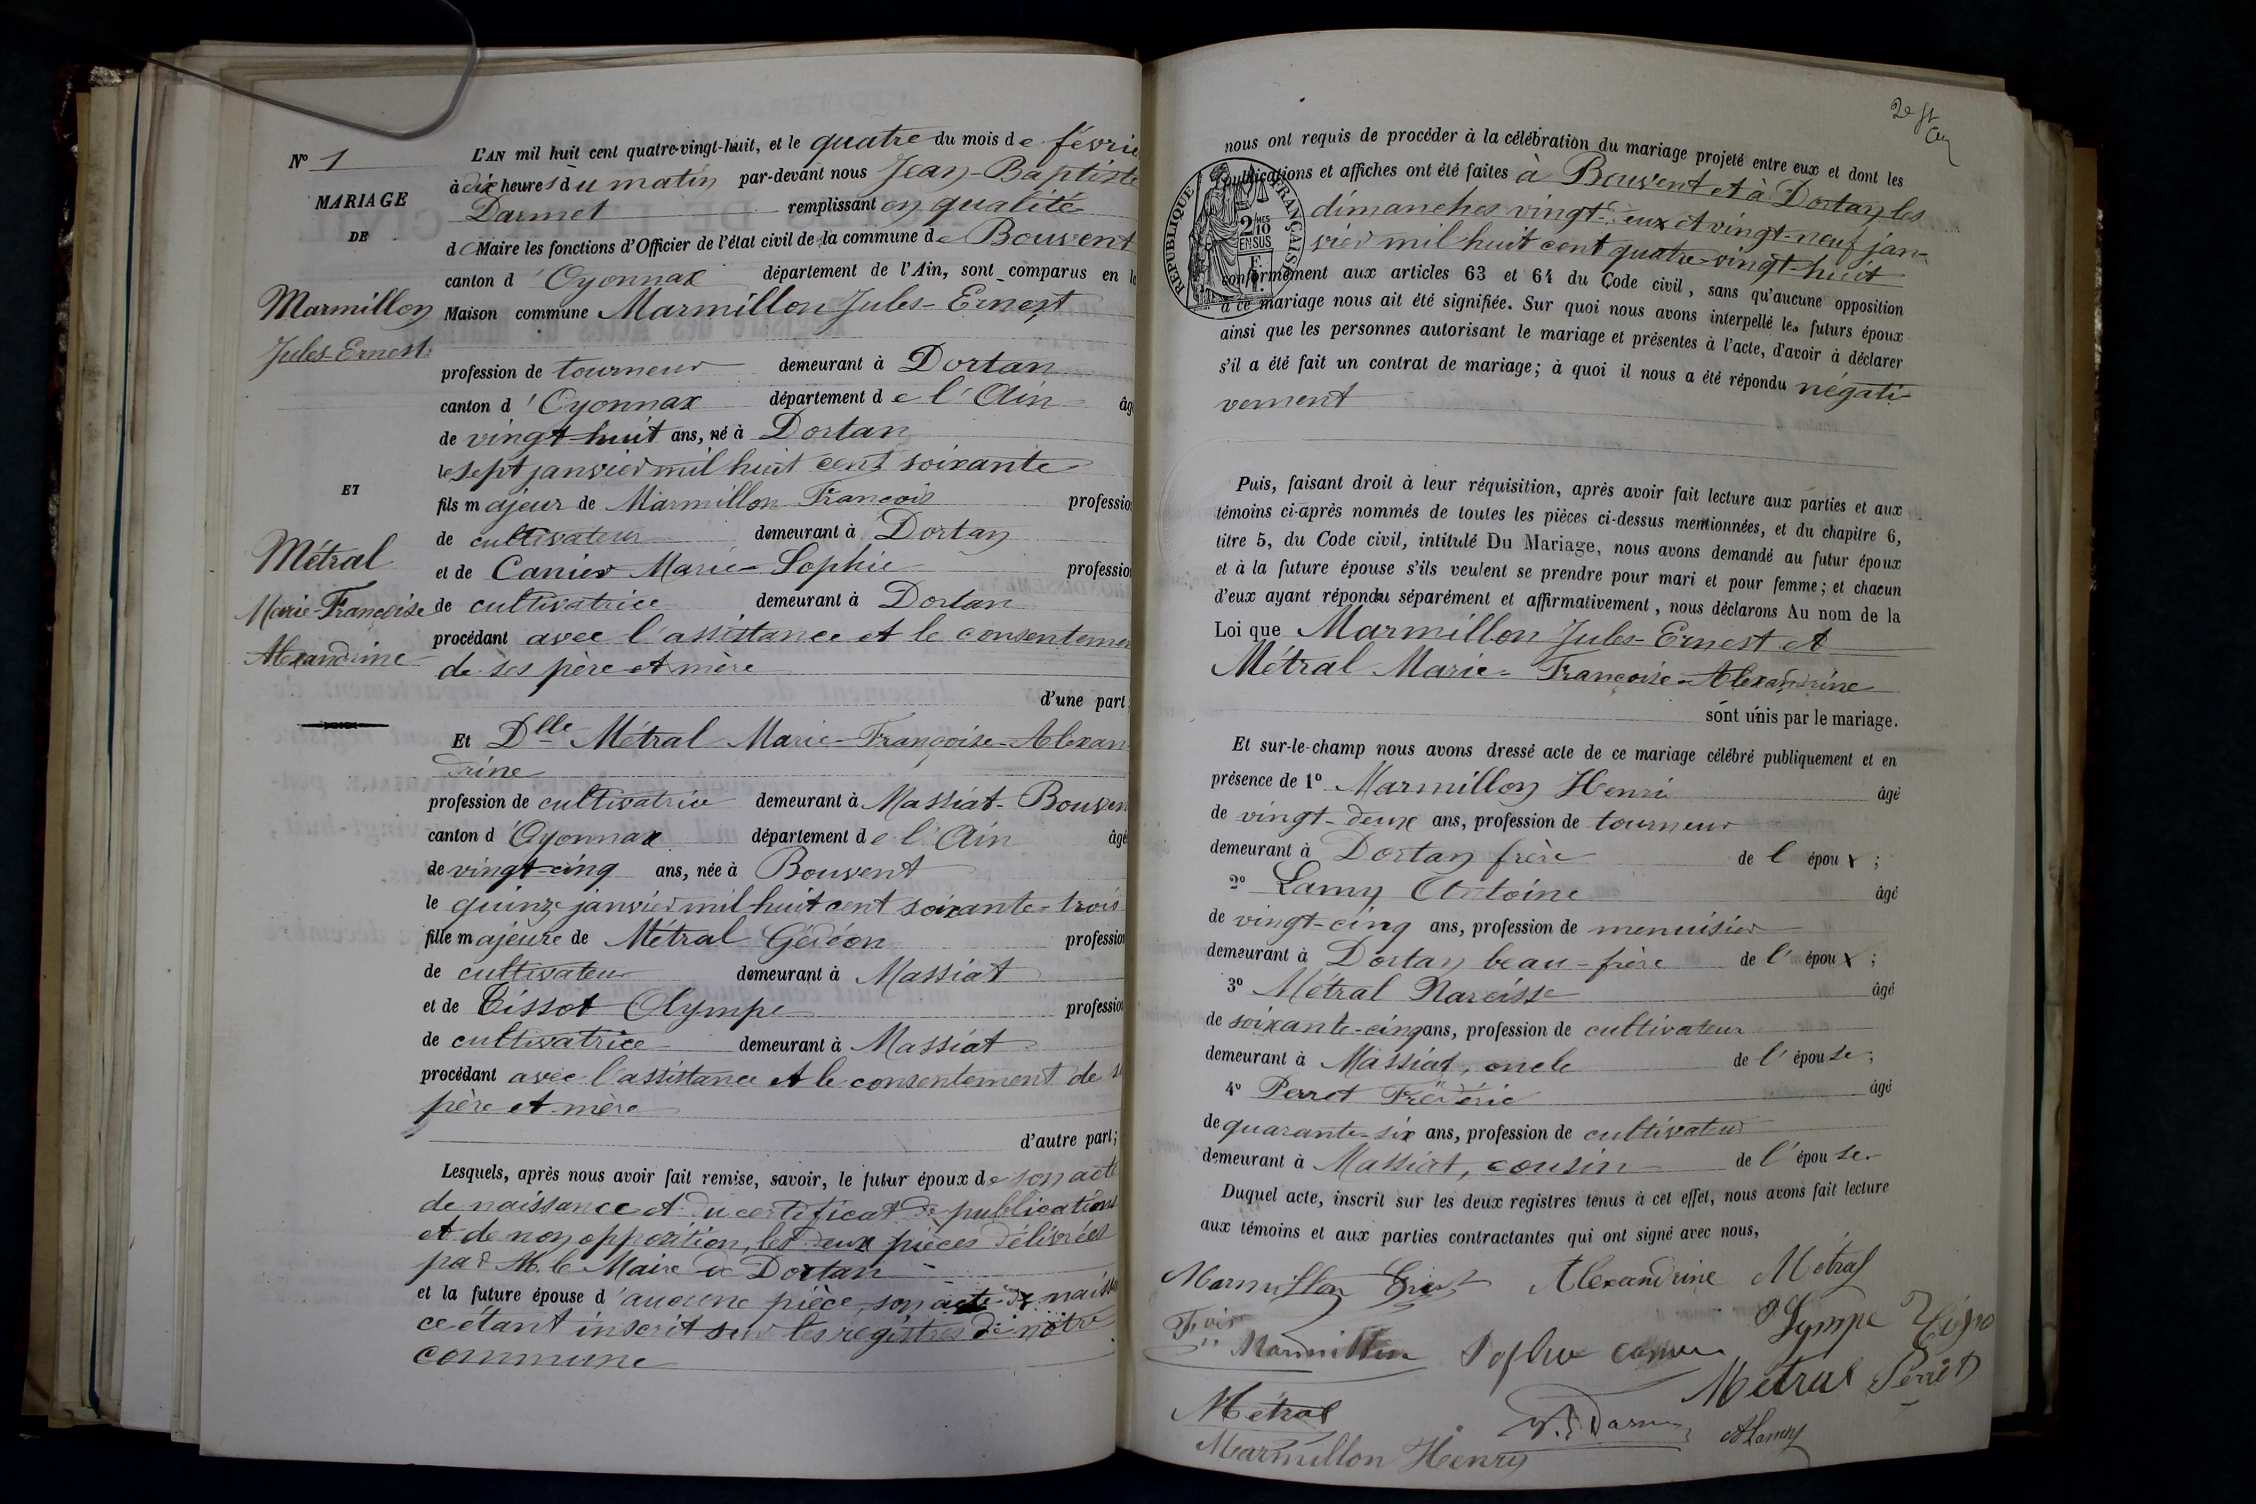 N° 1
MARIAGE
DE
Marmillon
Jules-Ernest
ET
Métral
Marie-Françoise
Alexandrine
L'AN mil huit cent quatre-vingt-huit, et le quatre du mois de févrie
à dix heures du matin par-devant nous Jean-Baptiste
Darmet remplissant en qualité
de Maire les fonctions d'Officier de l'état civil de la commune de Bouvent
canton d'Oyonnax département de l'Ain, sont comparus en la
Maison commune Marmillon Jules-Ernest
profession de tourneur demeurant à Dortan
canton d'Oyonnax département de l'Ain âgé
de vingt-huit ans, né à Dortan
le sept janvier mil huit cent soixante
fils majeur de Marmillon François profession
de cultivateur demeurant à Dortan
et de Canier Marie-Sophie profession
de cultivatrice demeurant à Dortan
procédant avec l'assistance et le consentemen
de ses père et mère
d'une part
Et Dlle Métral Marie-Françoise-Alexan
drine
profession de cultivatrice demeurant à Massiat-Bouven
canton d'Oyonnax département de l'Ain âgé
de vingt-cinq ans, née à Bouvent
le quinze janvier mil huit cent soixante-trois
fille majeure de Métral Gédéon profession
de cultivateur demeurant à Massiat
et de Tissot Olympe profession
de cultivatrice demeurant à Massiat
procédant avec l'assistance et le consentement de s
père et mère
d'autre part;
Lesquels, après nous avoir fait remise, savoir, le futur époux de son acte
de naissance et du certificat de publications
et de non opposition, les deux pièces délivrées
par M. le Maire de Dortan
et la future épouse d'aucune pièce, son acte de naissan
ce étant inscrit sur les registres de notre
commune
2e ft
nous ont requis de procéder à la célébration du mariage projeté entre eux et dont les
publications et affiches ont été faites à Bouvent et à Dortan les
dimanches vingt-deux et vingt-neuf jan-
vier mil huit cent quatre-vingt-huit
conformément aux articles 63 et 64 du Code civil, sans qu'aucune opposition
à ce mariage nous ait été signifiée. Sur quoi nous avons interpellé les futurs époux
ainsi que les personnes autorisant le mariage et présentes à l'acte, d'avoir à déclarer
s'il a été fait un contrat de mariage; à quoi il nous a été répondu négati-
vement
RÉPUBLIQUE FRANÇAISE
2/10 MES
EN SUS
Puis, faisant droit à leur réquisition, après avoir fait lecture aux parties et aux
témoins ci-après nommés de toutes les pièces ci-dessus mentionnées, et du chapitre 6,
titre 5, du Code civil, intitulé Du Mariage, nous avons demandé au futur époux
et à la future épouse s'ils veulent se prendre pour mari et pour femme; et chacun
d'eux ayant répondu séparément et affirmativement, nous déclarons Au nom de la
Loi que Marmillon Jules-Ernest et
Métral Marie-Françoise-Alexandrine
sont unis par le mariage.
Et sur-le-champ nous avons dressé acte de ce mariage célébré publiquement et en
présence de 1° Marmillon Henri âgé
de vingt-deux ans, profession de tourneur
demeurant à Dortan frère de l'époux;
2° Lamy Antoine âgé
de vingt-cinq ans, profession de menuisier
demeurant à Dortan beau-frère de l'époux;
3° Métral Narcisse âgé
de soixante-cinq ans, profession de cultivateur
demeurant à Massiat, oncle de l'épouse;
4° Perret Frédéric âgé
de quarante-six ans, profession de cultivateur
demeurant à Massiat, cousin de l'épouse
Duquel acte, inscrit sur les deux registres tenus à cet effet, nous avons fait lecture
aux témoins et aux parties contractantes qui ont signé avec nous,
Marmillon Alexandrine Métral
Marmillon Sophie Olympe
Métral Perret
Métral Darmet ALamy
Marmillon Henry